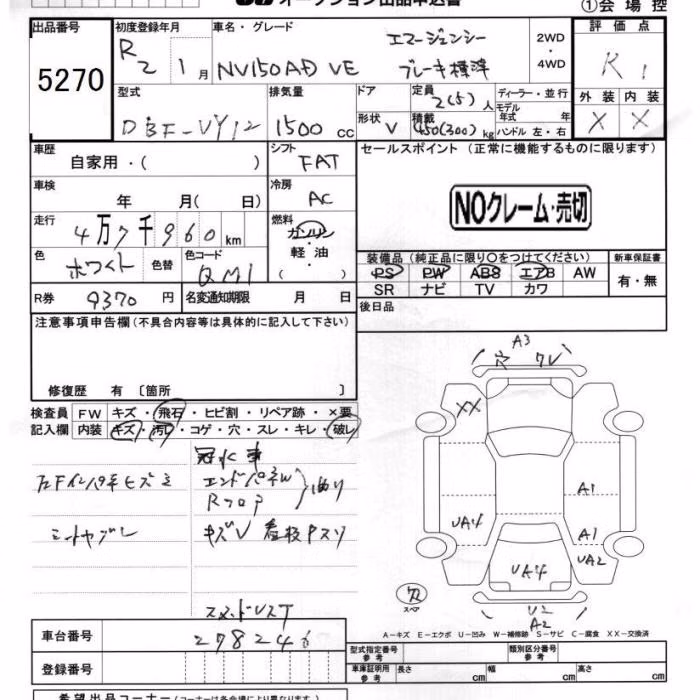 ①会場控
出品番号
5270
初度登録年月
R2 1月
車名・グレード
NV150AD VE
エマージェンシー
ブレーキ標準
2WD
・
4WD
評価点
R1
外装 内装
X X
型式
DBF-VY12
排気量
1500 cc
ドア
定員
2(5)人
ディーラー・並行
モデル年式 年
形状
V
積載
450(300)kg
ハンドル 左・右
車歴
自家用・( )
シフト
FAT
セールスポイント (正常に機能するものに限ります)
車検
年 月( 日)
冷房
AC
NOクレーム・売切
走行
4万7千960km
燃料
ガソリン
・
軽油
( )
色
ホワイト
色替
色コード
QM1
装備品(純正品に限り○をつけてください)
新車保証書
PS PW ABS エアB AW
SR ナビ TV カワ
有・無
R券
9370円
名変通知期限 月 日
後日品
注意事項申告欄(不具合内容等は具体的に記入して下さい)
修復歴 有〔箇所 〕
検査員
記入欄
FW キズ・飛石・ヒビ割・リペア跡・×要
内装 キズ・汚れ・コゲ・穴・スレ・キレ・破レ
冠水車
エンドパネW
Rフロア
シートヤブレ
キズV 看板アスリ
A3
穴 ワレ
XX
A1
UA4
A1
UA2
UA4
U2
A2
スペア
A-キズ E-エクボ U-凹み W-補修跡 S-サビ C-腐食 XX-交換済
車台番号
278246
登録番号
型式指定番号
参考
類別区分番号
参考
車庫証明用
参考
長さ cm
幅 cm
高さ cm
希望出品コーナー